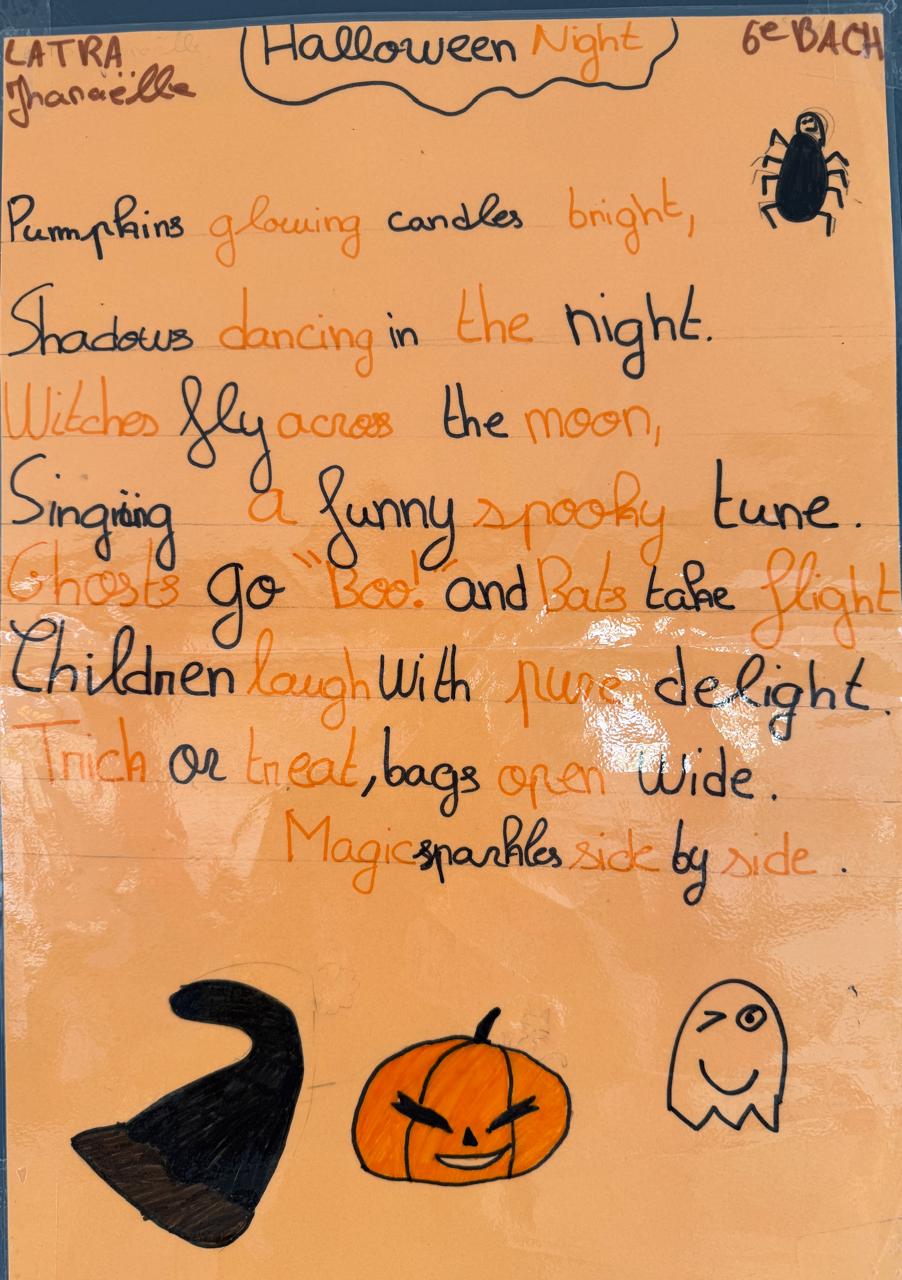 LATRA
Jhanaëlle
Halloween Night
6e BACH
Pumpkins glowing candles bright,
Shadows dancing in the night.
Witches fly across the moon,
Singing a funny spooky tune.
Ghosts go "Boo!" and Bats take flight
Children laugh With pure delight.
Trick or treat, bags open Wide.
Magic sparkles side by side.